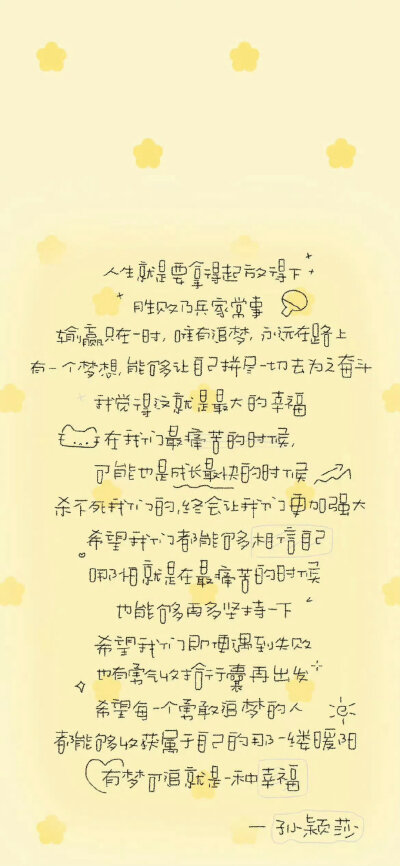 人生就是要拿得起放得下
胜败乃兵家常事
输赢只在一时，唯有追梦，永远在路上
有一个梦想，能够让自己拼尽一切去为之奋斗
我觉得这就是最大的幸福
在我们最痛苦的时候，
可能也是成长最快的时候
杀不死我们的，终会让我们更加强大
希望我们都能够相信自己
哪怕就是在最痛苦的时候
也能够再多坚持一下
希望我们即便遇到失败
也有勇气收拾行囊再出发
希望每一个勇敢追梦的人
都能够收获属于自己的那一缕暖阳
有梦可追就是一种幸福
一孙颖莎